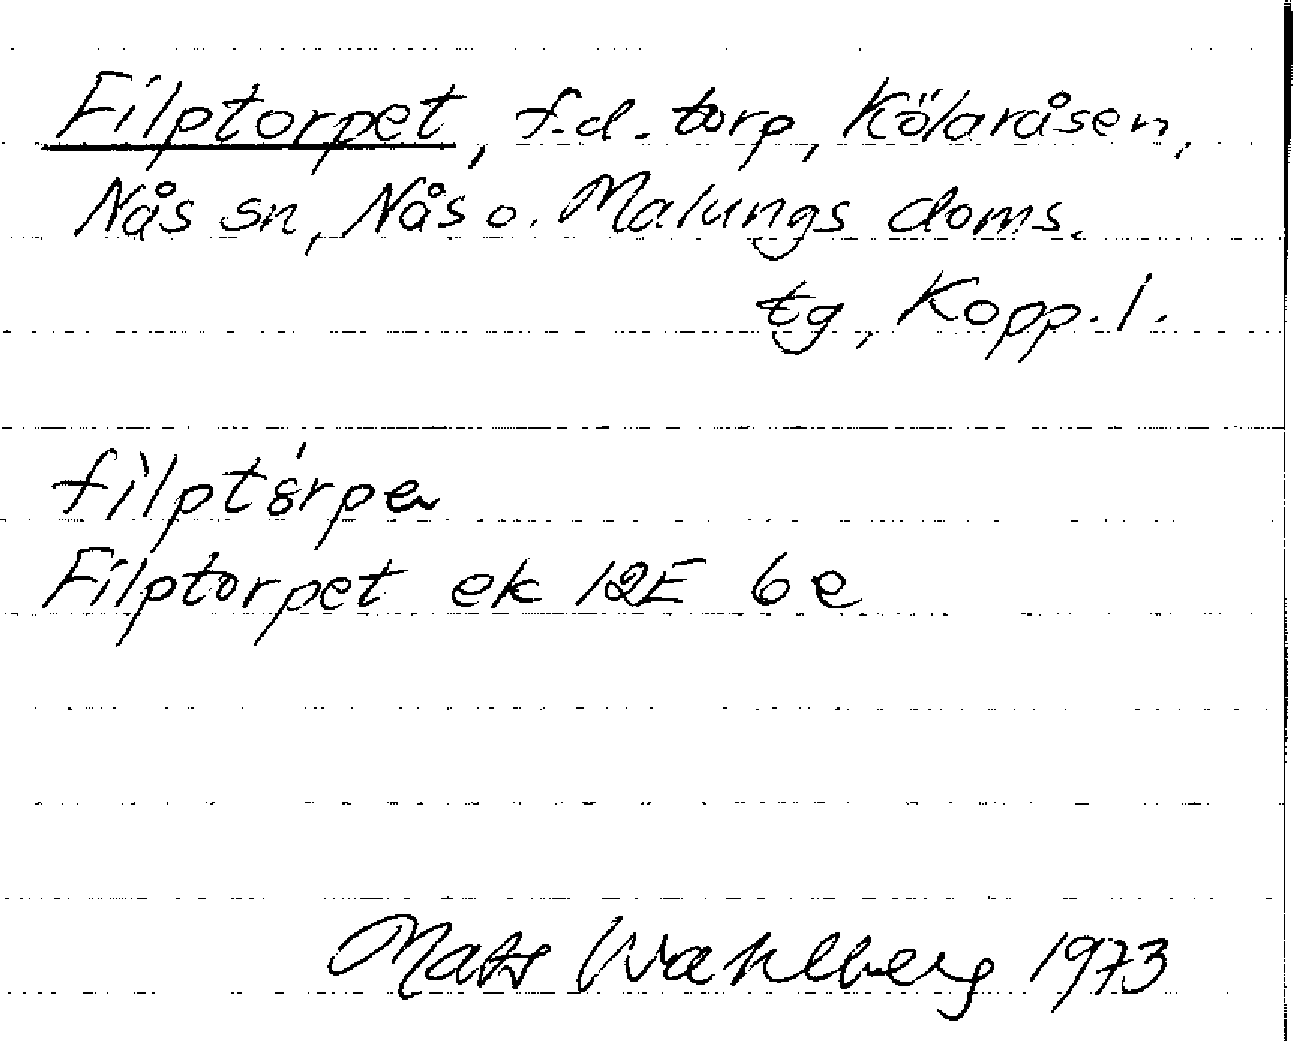 Filptorpet, f.d. torp, Kölaråsen,
Nås sn, Nås o. Malungs doms.
tg, Kopp. l.
Filptorpet ek 12E 6e
Mats Wahlberg 1973